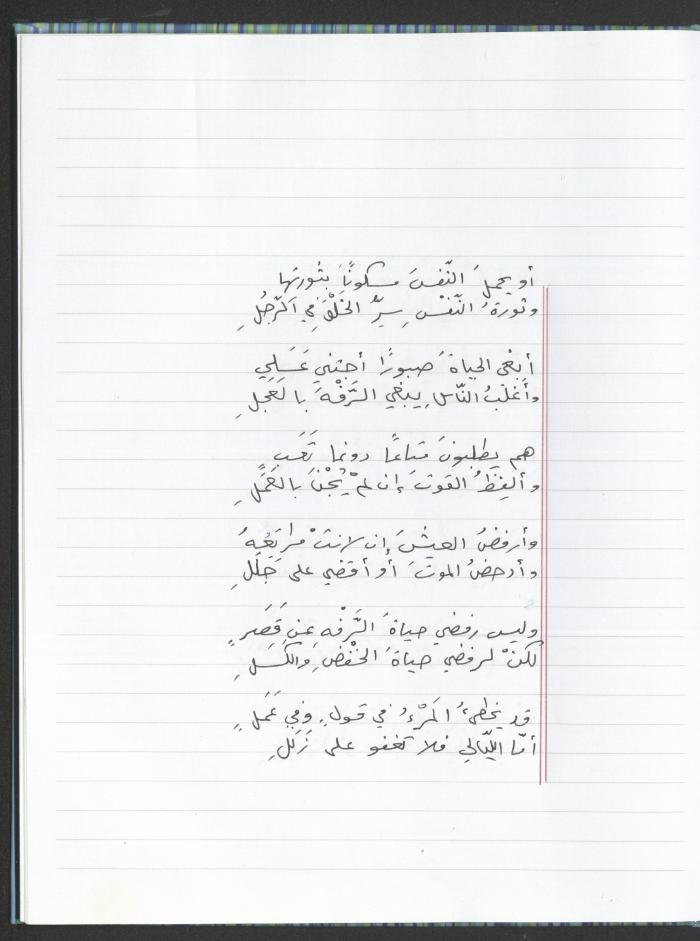 أو يحملَ النّفسَ مسكونًا بثورتها
وثورةُ النّفْسِ سِرُّ الخَلْقِ في الرّجُلِ
أبغي الحياةَ صبورًا أجتني عَسَلِي
وأغلبُ النّاسِ يبغي الرَّفْهَ بالعَجلِ
هم يطلبونَ متاعًا دونما تَعَبٍ
وألفِظُ القوتَ إن لمْ يُجْنَ بالعَمَلِ
وأرفضُ العيشَ إن لانتْ مراتِعُهُ
وأدحضُ الموتَ أو أقضي على جَلَلِ
وليس رفضي حياةَ الرَّفْهِ عن قَصَرٍ
لكنْ لرفضي حياةَ الخَفْضِ والكَسَلِ
قد يخطىءُ المَرْءُ في قولٍ وفي عَمَلٍ
أمّا اللّيالي فلا تغفو على زَلَلِ